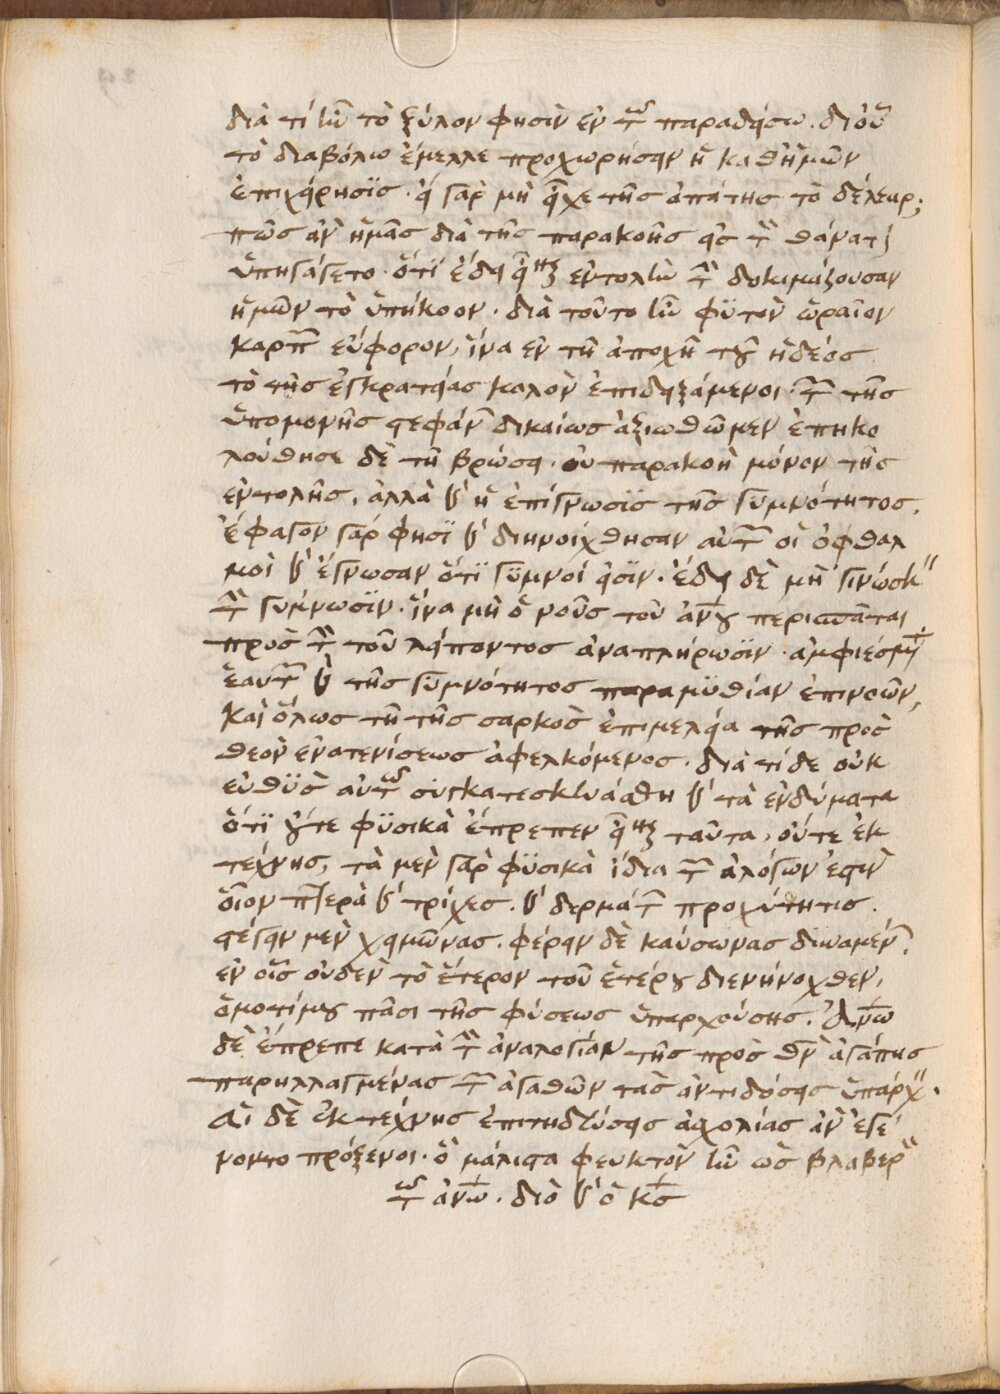 διὰ τί ἦν τὸ ξύλον φησὶν ἐν τῶ παραδείσω. δι' οὗ
τὸ διαβόλω ἔμελλε προχωρήσειν ἡ καθ' ἡμῶν
ἐπιχείρησϊς. εἰ γὰρ μὴ εἶχε τῆς ἀπάτης τὸ δέλεαρ;
πῶς ἂν ἡμᾶς διὰ τῆς παρακοῆς εἰς τὸν θάνατον
ὑπηγάγετο. ὅτϊ ἔδει εἶναι ἐντολὴν τὴν δοκιμάζουσαν
ἡμῶν τὸ ὑπήκοον. διὰ τοῦτο ἦν φϋτὸν ὡραῖον
καρπῶν εὔφορον, ἵνα ἐν τῆ ἀποχῆ τοῦ ἡδέος
τὸ τῆς ἐγκρατείας καλὸν ἐπιδειξάμενοι. τῶν τῆς
ὑπομονῆς στεφάνων δικαίως ἀξιωθῶμεν ἐπηκο
λούθησε δὲ τῆ βρώσει. οὐ παρακοὴ μόνον τῆς
ἐντολῆς, ἀλλὰ καὶ ἡ ἐπίγνωσϊς τῆς γυμνότητος.
ἔφαγον γάρ φησϊ καὶ διηνοίχθησαν αὐτῶν οἱ ὀφθαλ
μοὶ καὶ ἔγνωσαν ὅτϊ γϋμνοί εἰσϊν. ἔδει δὲ μὴ γινώσκειν
τὴν γύμνωσϊν. ἵνα μὴ ὁ νοῦς τοῦ ἀνου περισπᾶται
πρὸς τὴν τοῦ λείποντος ἀναπλήρωσϊν. ἀμφιέσματα
ἑαυτῶ καὶ τῆς γϋμνότητος παραμϋθίαν ἐπινοῶν,
καὶ ὅλως τῆ τῆς σαρκὸς ἐπιμελεία τῆς πρὸς
θεὸν ἐνατενίσεως ἀφελκόμενος. διὰ τί δε οὐκ
εὐθϋς αὐτῶ συγκατεσκευάσθη καὶ τὰ ἐνδύματα
ὅτϊ οὔτε φϋσικὰ ἔπρεπεν εἶναι ταῦτα, οὔτε ἐκ
τέχνης, τὰ μὲν γὰρ φϋσικὰ ἴδια τῶν ἀλόγων ἐστὶν
οἷον πτερὰ καὶ τρίχες. καὶ δερμάτων παχύτητες.
στέγειν μὲν χειμῶνας. φέρειν δὲ καύσωνας δυνάμεναι.
ἐν οἷς οὐδὲν τὸ ἕτερον τοῦ ἑτέρου διενήνοχθεν,
ὁμοτίμου πᾶσι τῆς φύσεως ὑπαρχούσης. ἀνω
δὲ ἔπρεπε κατὰ τὴν ἀναλογίαν τῆς πρὸς θν ἀγάπης
παρηλλαγμένας τῶν ἀγαθῶν τὰς ἀντιδόσεις ὑπάρχειν.
αἱ δὲ ἐκ τέχνης ἐπιτηδεύσεις ἀσχολίας ἂν ἐγέ
νοντο πρόξενοι. ὃ μάλιστα φευκτὸν ἦν ὡς βλαβερὸν
τῶ ἀνω. διὸ καὶ ὁ κς